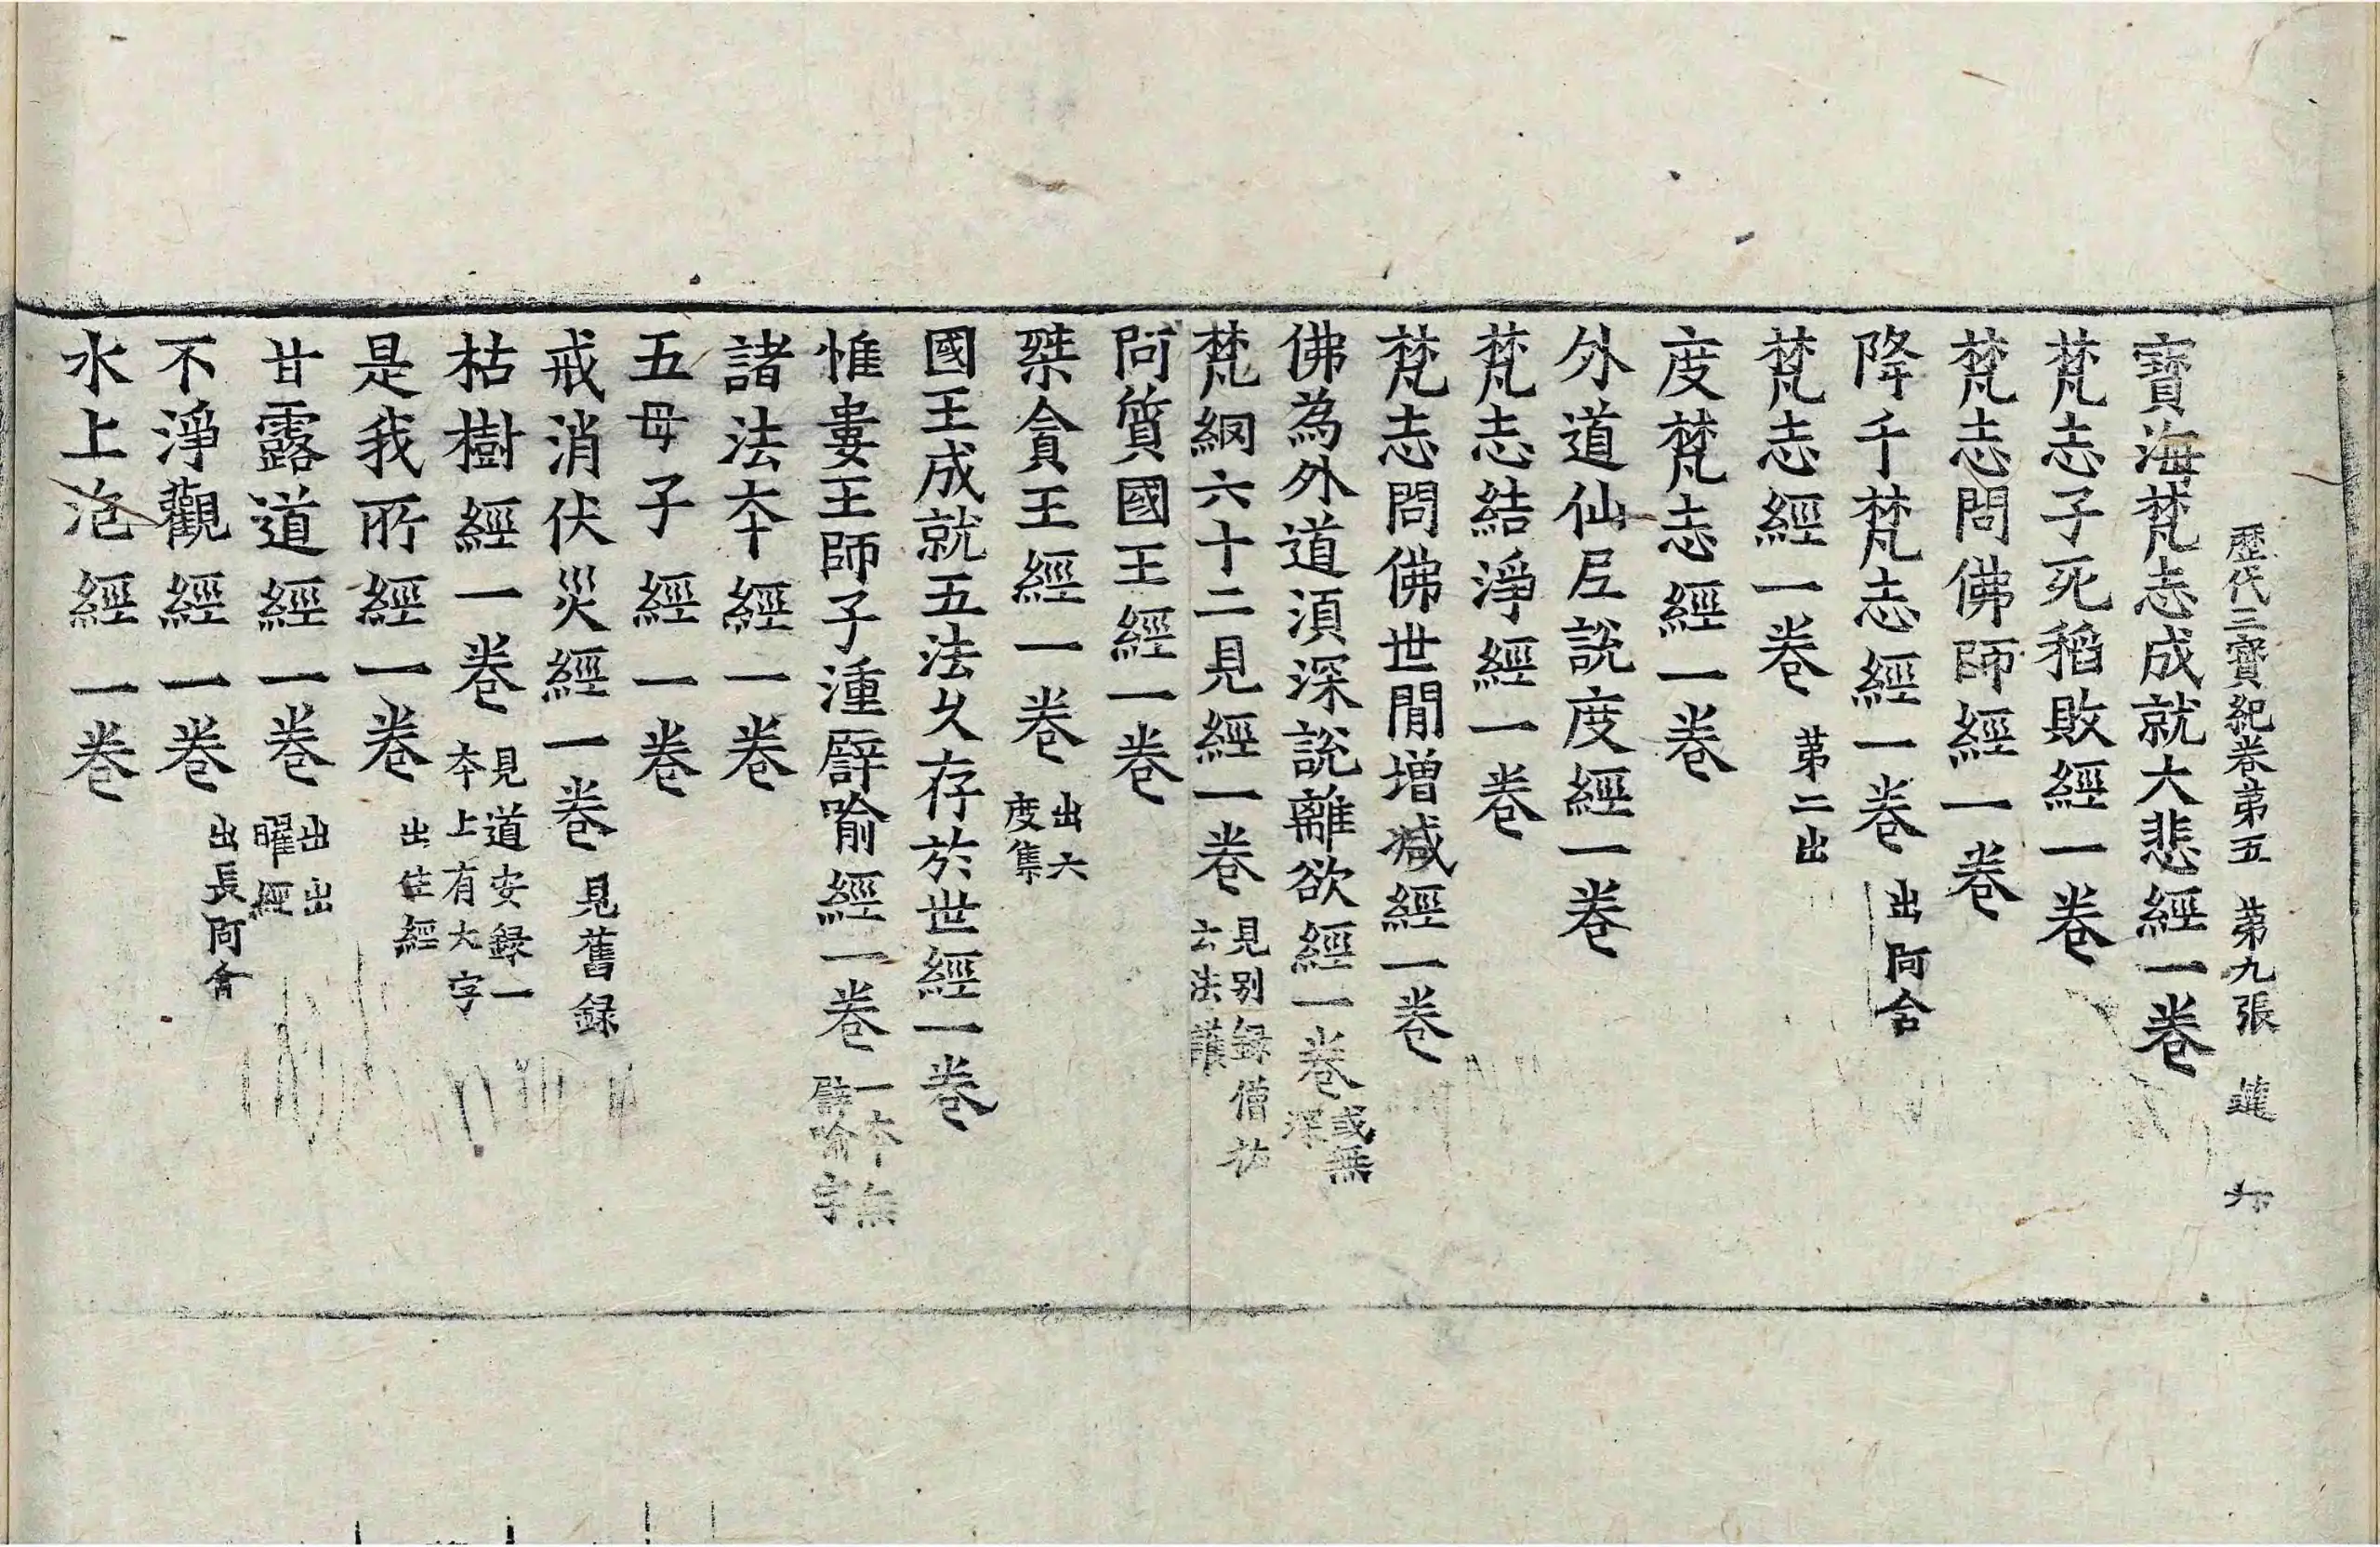 歷代三寶紀卷第五 第九張
寶海梵志成就大悲經一卷
梵志子死稻敗經一卷
梵志問佛師經一卷
降千梵志經一卷 出阿含
梵志經一卷 第二出
度梵志經一卷
外道仙尼說度經一卷
梵志結淨經一卷
梵志問佛世閒增減經一卷
佛為外道湏深說離欲經一卷 或無深
梵網六十二見經一卷 見别録僧祐云法護
阿質國王經一卷
桀貪王經一卷 出六度集
國王成就五法久存於世經一卷
惟婁王師子湩譬喻經一卷 一本無譬喻字
諸法本經一卷
五母子經一卷
戒消伏災經一卷 見舊録
枯樹經一卷 見道安録一本上有大字
是我所經一卷 出生經
甘露道經一卷 出出曜經
不淨觀經一卷 出長阿含
水上泡經一卷